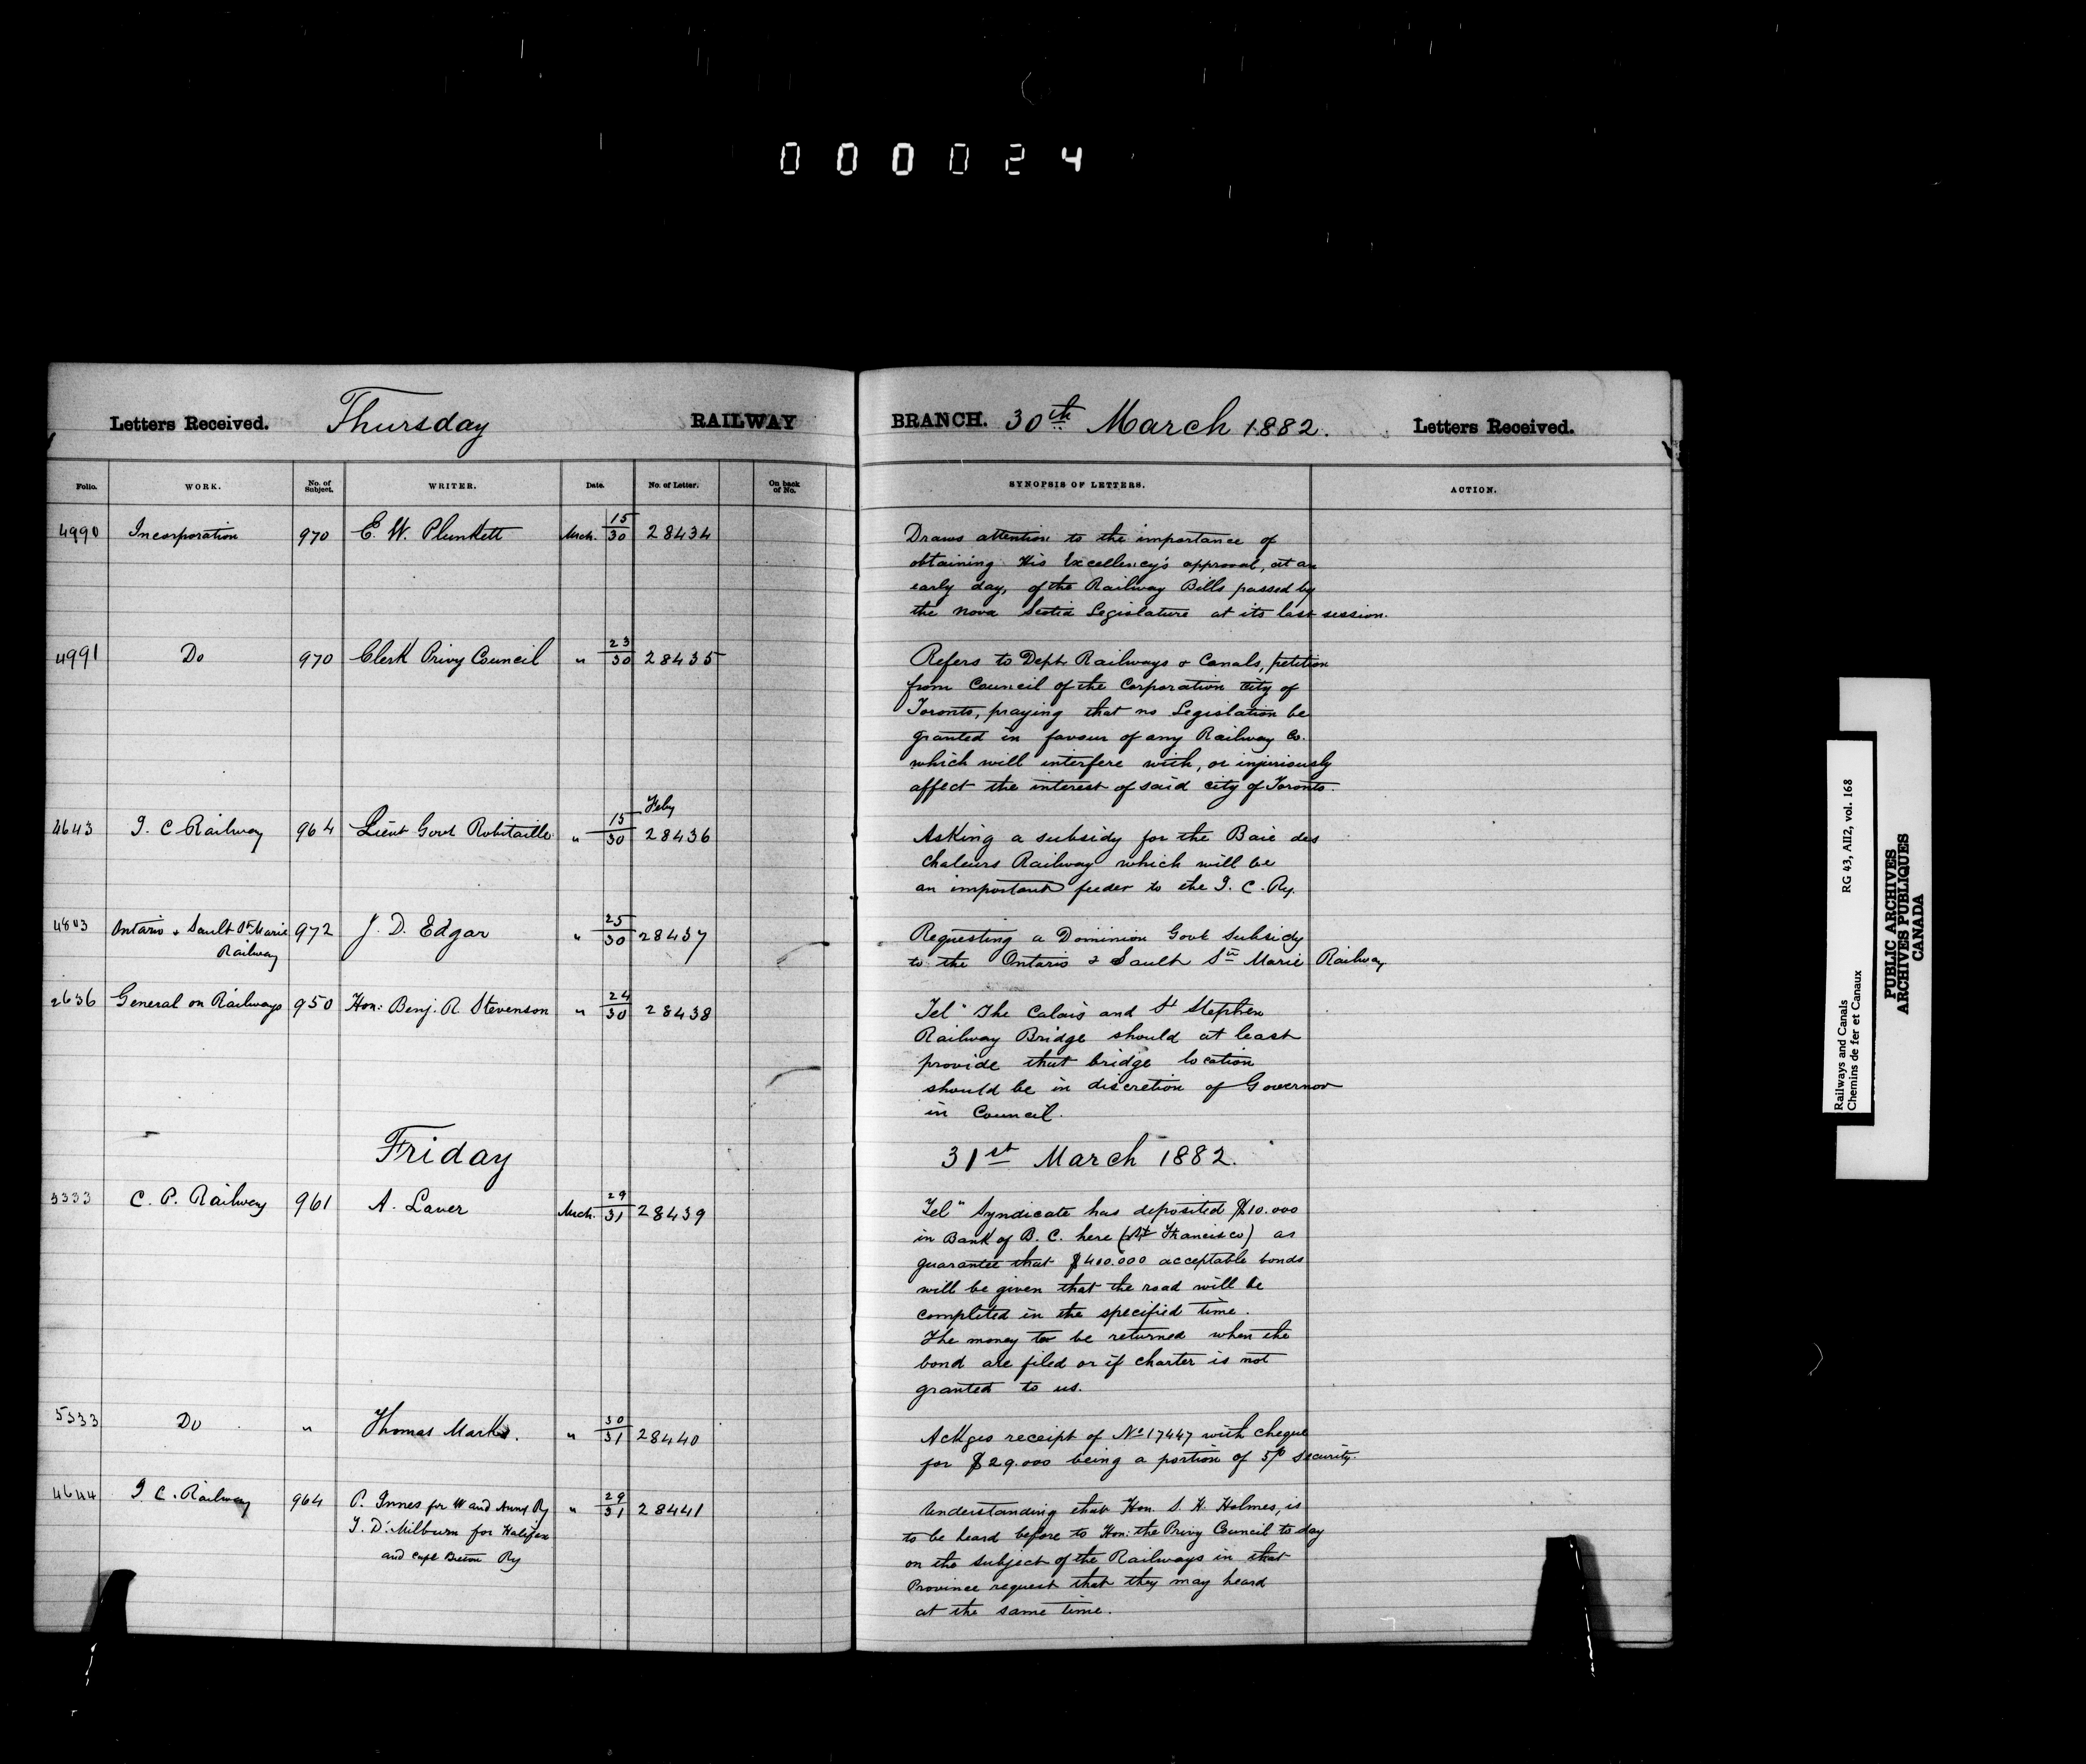 000024
Letters Received. Thursday RAILWAY BRANCH. 30th March 1882. Letters Received.
Folio. WORK. No. of Subject. WRITER. Date. No. of Letter. On back of No. SYNOPSIS OF LETTERS. ACTION.
4990 Incorporation 970 E. W. Plunkett Mch. 15/30 28434 Draws attention to the importance of
obtaining His Excellency's approval, at an
early day, of the Railway Bills passed by
the Nova Scotia Legislature at its last session.
4991 Do 970 Clerk Privy Council " 23/30 28435 Refers to Dept Railways & Canals, petition
from Council of the Corporation City of
Toronto, praying that no Legislation be
granted in favour of any Railway Co.
which will interfere with, or injuriously
affect the interest of said city of Toronto.
Feby
4643 I. C Railway 964 Lieut Govr Robitaille " 15/30 28436 Asking a subsidy for the Baie des
Chaleurs Railway which will be
an important feeder to the I. C. Ry.
4803 Ontario & Sault St Marie 972 J. D. Edgar " 25/30 28437 Requesting a Dominion Govt Subsidy
Railway to the Ontario & Sault Ste Marie Railway
2636 General on Railways 950 Hon: Benj. R Stevenson " 24/30 28438 Tel " The Calais and St Stephen
Railway Bridge should at least
provide that bridge location
should be in discretion of Governor
in Council.
Friday 31st March 1882.
5333 C. P. Railway 961 A. Laver Mch. 29/31 28439 Tel " Syndicate has deposited $10.000
in Bank of B. C. here (St Francisco) as
guarantee that $400.000 acceptable bonds
will be given that the road will be
completed in the specified time.
The money to be returned when the
bond are filed or if charter is not
granted to us.
5333 Do " Thomas Marks. " 30/31 28440 Ackges receipt of No 17447 with cheque
for $29.000 being a portion of 5% security.
4644 I C. Railway 964 P. Innes for W and Anns Ry " 29/31 28441 Understanding that Hon. S. H. Holmes, is
I. D. Milburn for Halifax to be heard before to Hon: the Privy Council to day
and Cape Breton Ry on the subject of the Railways in that
Province request that they may heard
at the same time.
Railways and Canals RG 43, AIII2, vol. 168
Chemins de fer et Canaux
PUBLIC ARCHIVES
ARCHIVES PUBLIQUES
CANADA